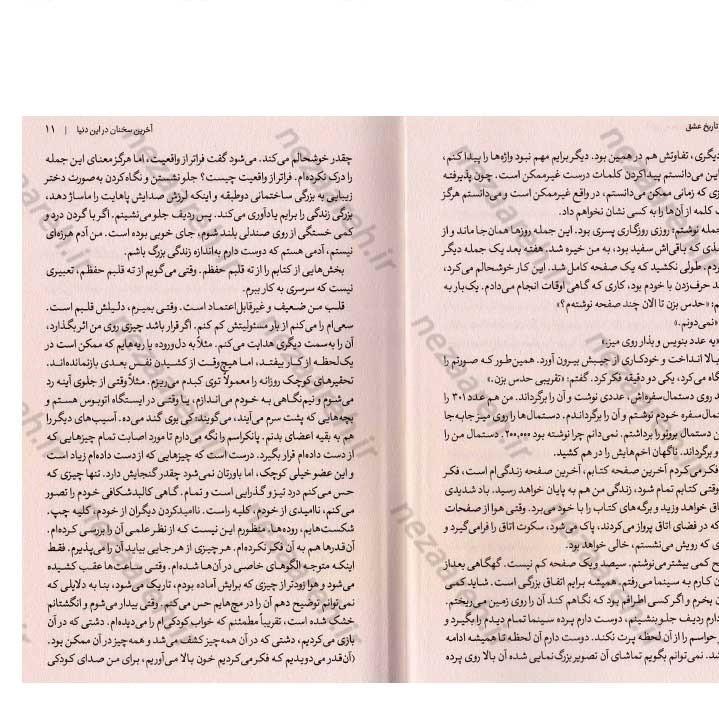 تاریخ عشق
دیگری، تفاوتش هم در همین بود. دیگر برایم مهم نبود واژه‌ها را پیدا کنم،
این می‌دانستم پیدا کردن کلمات درست غیرممکن است. چون پذیرفته
زی که زمانی ممکن می‌دانستم، در واقع غیرممکن است و می‌دانستم هرگز
ب کلمه از آن‌ها را به کسی نشان نخواهم داد.
جمله نوشتم: روزی روزگاری پسری بود. این جمله روزها همان‌جا ماند و از
ذی که باقی‌اش سفید بود، به من خیره شد. هفته بعد یک جمله دیگر
ردم، طولی نکشید که یک صفحه کامل شد. این کار خوشحالم می‌کرد،
ند حرف‌زدن با خودم بود، کاری که گاهی اوقات انجام می‌دادم. یک‌بار به
م: «حدس بزن تا الان چند صفحه نوشته‌م؟»
«نمی‌دونم.»
«یه عدد بنویس و بذار روی میز.»
بالا انداخت و خودکاری از جیبش بیرون آورد. همین‌طور که صورتم را
گاه می‌کرد، یکی دو دقیقه فکر کرد. گفتم: «تقریبی حدس بزن.»
د روی دستمال سفره‌اش، عددی نوشت و آن را برگرداند. من هم عدد ۳۰۱ را
تمال‌سفره خودم نوشتم و آن را برگرداندم. دستمال‌ها را روی میز جابه‌جا
ن دستمال برونو را برداشتم. نمی‌دانم چرا نوشته بود ۲۰۰,۰۰۰. دستمال من را
و برگرداند. ناگهان اخم‌هایش را در هم کشید.
فکر می‌کردم آخرین صفحه کتابم، آخرین صفحه زندگی‌ام است، فکر
وقتی کتابم تمام شود، زندگی من هم به پایان خواهد رسید. باد شدیدی
خواهد وزید و برگه‌های کتاب را با خود می‌برد. وقتی هوا از صفحات
که در فضای اتاق پرواز می‌کردند، پاک می‌شود، سکوت اتاق را فرامی‌گیرد و
ی که رویش می‌نشستم، خالی خواهد بود.
ح کمی بیشتر می‌نوشتم. سیصد و یک صفحه کم نیست. گهگاهی بعد از
ن کارم به سینما می‌رفتم. همیشه برایم اتفاق بزرگی است. شاید کمی
ن بخرم و اگر کسی اطرافم بود که نگاهم کند آن را روی زمین می‌ریختم.
دارم ردیف جلو بنشینم، دوست دارم پرده سینما تمام دیدم را بگیرد و
رحواسم را از آن لحظه پرت نکند. دوست دارم آن لحظه تا همیشه ادامه
شد. نمی‌توانم بگویم تماشای آن تصویر بزرگ‌نمایی شده آن بالا روی پرده
آخرین سخنان در این دنیا | ۱۱
چقدر خوشحالم می‌کند. می‌شود گفت فراتر از واقعیت، اما هرگز معنای این جمله
را درک نکرده‌ام. فراتر از واقعیت چیست؟ جلو نشستن و نگاه‌کردن به‌صورت دختر
زیبایی به بزرگی ساختمانی دوطبقه و اینکه لرزش صدایش پاهایت را ماساژ دهد،
بزرگی زندگی را برایم یادآوری می‌کند. پس ردیف جلو می‌نشینم. اگر با گردن درد و
کمی خستگی از روی صندلی بلند شوم، جای خوبی بوده است. من آدم هرزه‌ای
نیستم، آدمی هستم که دوست دارم به‌اندازه زندگی بزرگ باشم.
بخش‌هایی از کتابم را از ته قلبم حفظم. وقتی می‌گویم از ته قلبم حفظم، تعبیری
نیست که سرسری به کار ببرم.
قلب من ضعیف و غیرقابل‌اعتماد است. وقتی بمیرم، دلیلش قلبم است.
سعی‌ام را می‌کنم از بار مسئولیتش کم کنم. اگر قرار باشد چیزی روی من اثر بگذارد،
آن را به‌سمت دیگری هدایت می‌کنم. مثلاً به دل‌وروده یا ریه‌هایم که ممکن است در
یک‌لحظه از کار بیفتند، اما هیچ‌وقت از کشیدن نفس بعدی بازنمانده‌اند.
تحقیرهای کوچک روزانه را معمولاً توی کبدم می‌ریزم. مثلاً وقتی از جلوی آینه رد
می‌شوم و نیم‌نگاهی به خودم می‌اندازم، یا وقتی در ایستگاه اتوبوس هستم و
بچه‌هایی که پشت سرم می‌آیند، می‌گویند: کی بوی گند می‌ده. آسیب‌های دیگر را
هم به بقیه اعضای بدنم. پانکراسم را نگه می‌دارم تا مورد اصابت تمام چیزهایی که
از دست داده‌ام قرار بگیرد. درست است که چیزهایی که از دست داده‌ام زیاد است
و این عضو خیلی کوچک، اما باورتان نمی‌شود چقدر گنجایش دارد. تنها چیزی که
حس می‌کنم درد تیز و گذرایی است و تمام. گاهی کالبدشکافی خودم را تصور
می‌کنم، ناامیدی از خودم، کلیه راست. ناامیدکردن دیگران از خودم، کلیه چپ.
شکست‌هایم، روده‌ها. منظورم این نیست که از نظر علمی آن را بررسی کرده‌ام.
آن‌قدرها هم به آن فکر نکرده‌ام. هر چیزی از هر جایی بیاید آن را می‌پذیرم. فقط
اینکه متوجه الگوهای خاصی در آن‌ها شده‌ام. وقتی ساعت‌ها عقب کشیده
می‌شود و هوا زودتر از چیزی که برایش آماده بودم، تاریک می‌شود، بنا به دلایلی که
نمی‌توانم توضیح دهم آن را در مچ‌هایم حس می‌کنم. وقتی بیدار می‌شوم و انگشتانم
خشک شده است، تقریباً مطمئنم که خواب کودکی‌ام را می‌دیده‌ام. دشتی که در آن
بازی می‌کردیم، دشتی که در آن همه‌چیز کشف می‌شد و همه‌چیز در آن ممکن بود.
(آن‌قدر می‌دویدیم که فکر می‌کردیم خون بالا می‌آوریم، برای من صدای کودکی